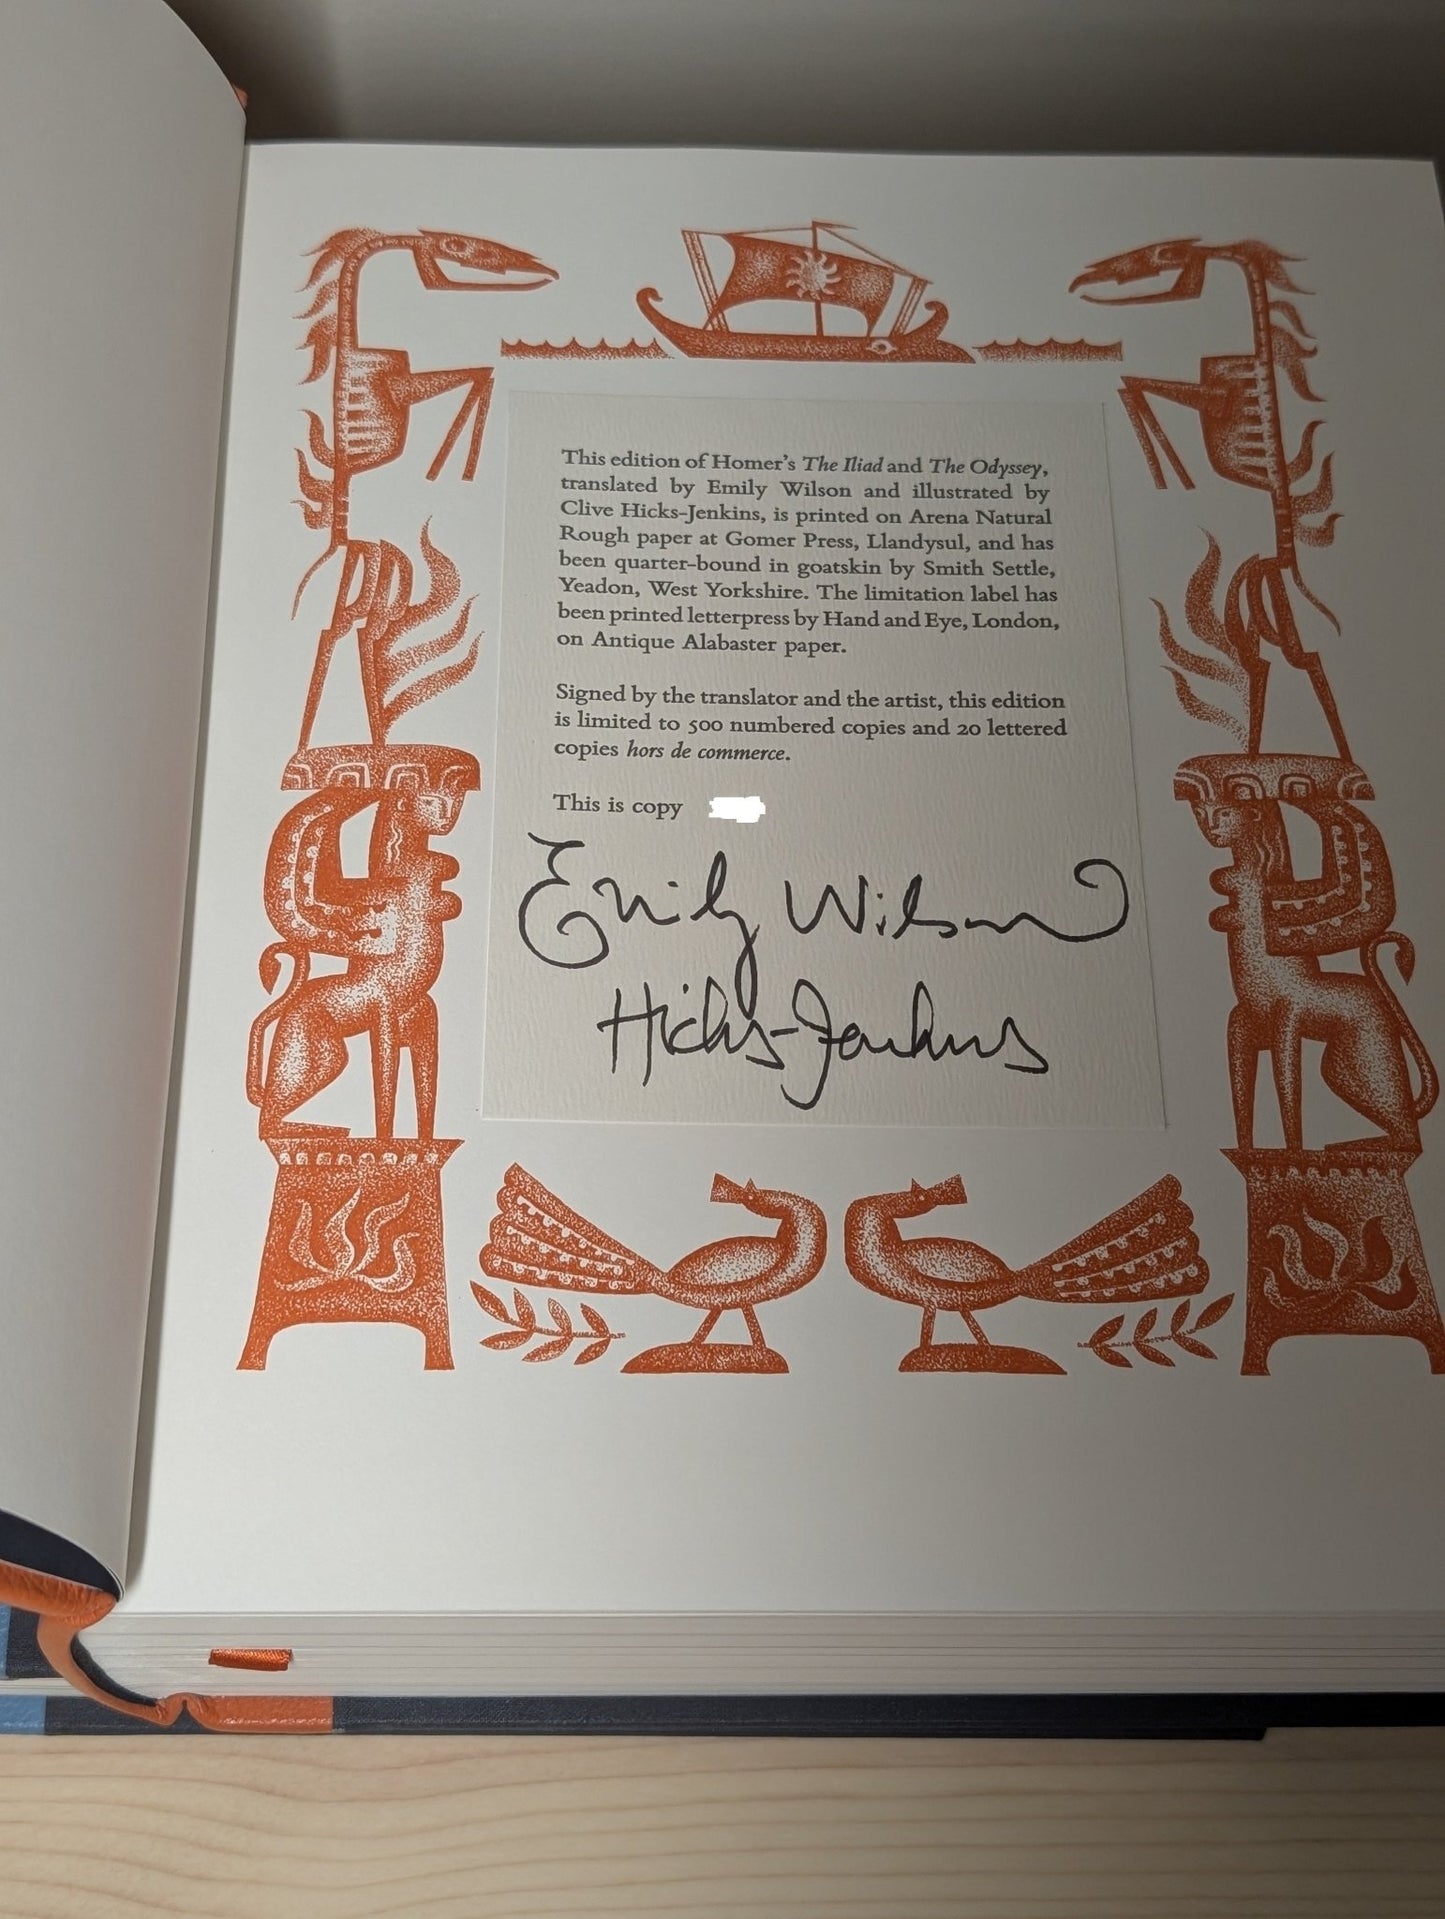 This edition of Homer's The Iliad and The Odyssey,
translated by Emily Wilson and illustrated by
Clive Hicks-Jenkins, is printed on Arena Natural
Rough paper at Gomer Press, Llandysul, and has
been quarter-bound in goatskin by Smith Settle,
Yeadon, West Yorkshire. The limitation label has
been printed letterpress by Hand and Eye, London,
on Antique Alabaster paper.
Signed by the translator and the artist, this edition
is limited to 500 numbered copies and 20 lettered
copies hors de commerce.
This is copy
Emily Wilson
Hicks-Jenkins